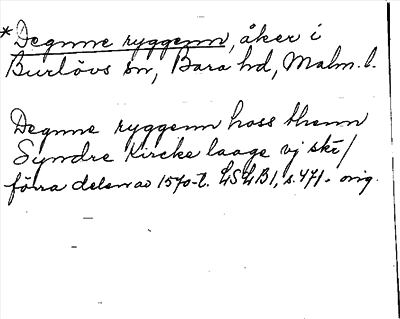 *Degnne ryggenn, åker i
Burlövs sn, Bara hd, Malm. l.
Degnne ryggenn hoss thenn
Syndre Kircke laage vj ske/
förra delen av 1570-t. LSLB1, s. 471. orig.